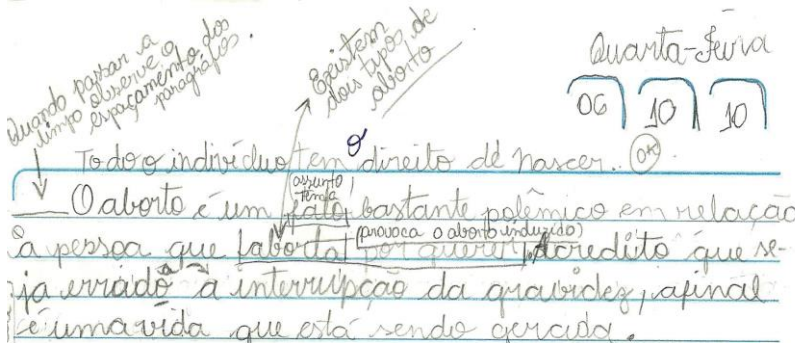 Quando passar a
limpo observe o
espaçamento dos
parágrafos.
Existem
dois tipos de
aborto
Quarta-feira
06 10 10
Todo o indivíduo tem o direito de nascer.
(assunto,
tema
O aborto é um fato bastante polêmico em relação
(provoca o aborto induzido)
à pessoa que aborta por querer. Acredito que se-
ja errado a interrupção da gravidez, afinal
é uma vida que está sendo gerada.